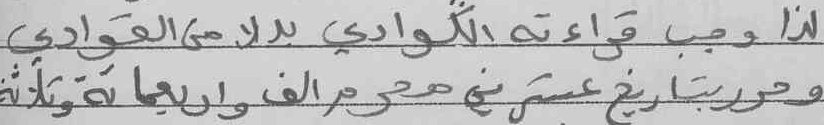 لذا وجب قراءته الكوادي بدلا من القوادي
وحرر بتاريخ عشرين محرم الف واربعمائة وثلاثة